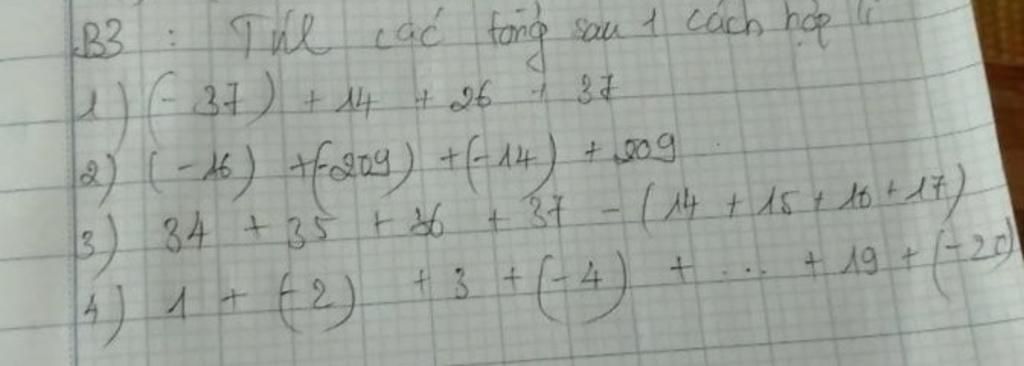 B3 : Tính các tổng sau 1 cách hợp lí
1) (-37) + 14 + 26 + 37
2) (-16) + (-209) + (-14) + 209
3) 34 + 35 + 36 + 37 - (14 + 15 + 16 + 17)
4) 1 + (-2) + 3 + (-4) + ... + 19 + (-20)